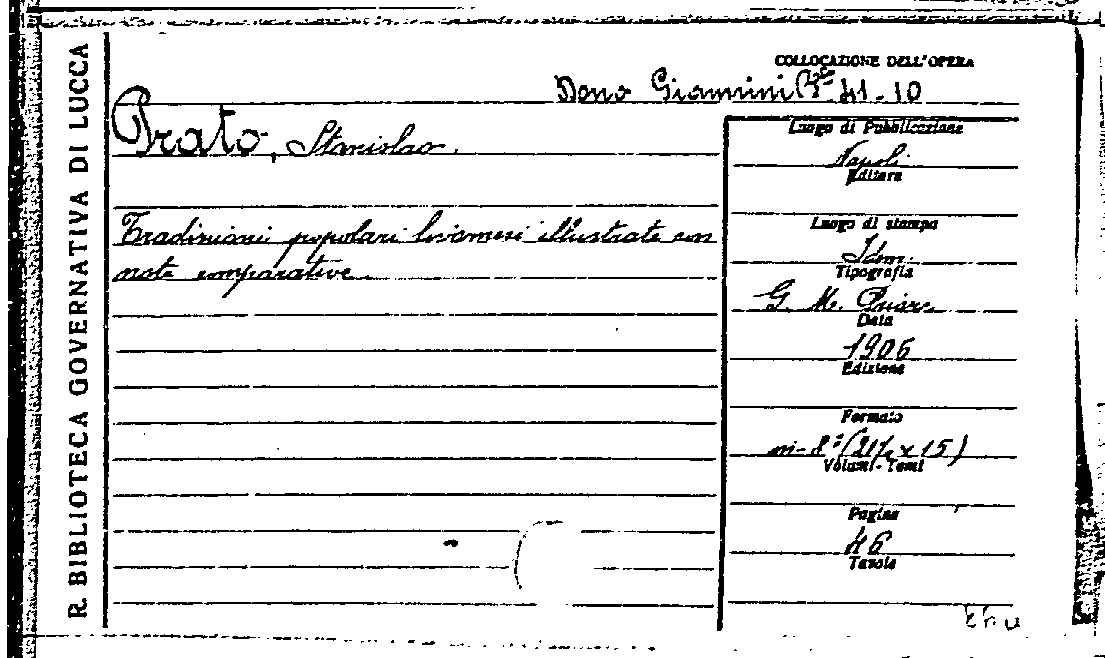 R. BIBLIOTECA GOVERNATIVA DI LUCCA
COLLOCAZIONE DELL'OPERA
Dono Giannini Bª 41-10
Prato, Stanislao.
Tradizioni popolari livornesi illustrate con
note comparative.
Luogo di Pubblicazione
Napoli
Editore
Luogo di stampa
Idem.
Tipografia
G. M. Priore
Data
1906
Edizione
Formato
in-8º (21½ x 15)
Volumi-Tomi
Pagine
46
Tavole